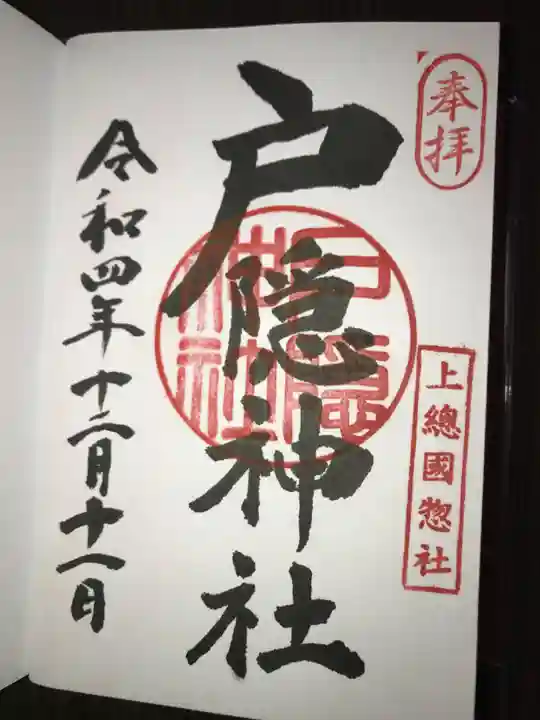 奉拝
上總國惣社
戸隠神社
戸隠神社
令和四年十二月十八日